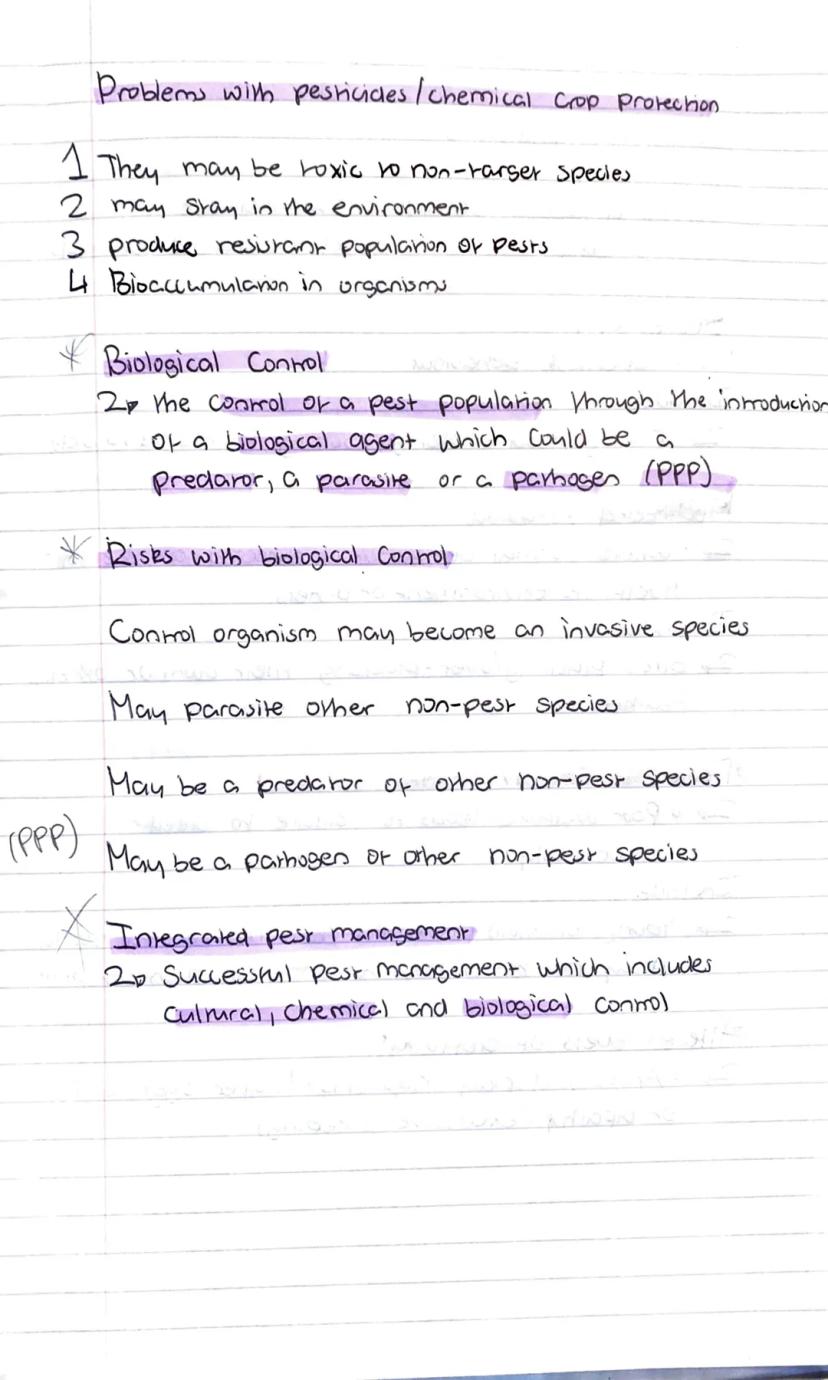 Problems with pesticides/chemical crop protection
1 They may be toxic to non-target species
2 may stay in the environment
3 produce resistant population of pests
4 Bioaccumulation in organisms
* Biological Control
the control of a pest population through the introduction
of a biological agent which could be a
predator, a parasite or a pathogen (PPP)
* Risks with biological control
Control organism may become an invasive species
May parasite other non-pest species
May be a predator of other non-pest species
(PPP)
May be a pathogen of other non-pest species
* Integrated pest management
Successful pest management which includes
cultural, chemical and biological control